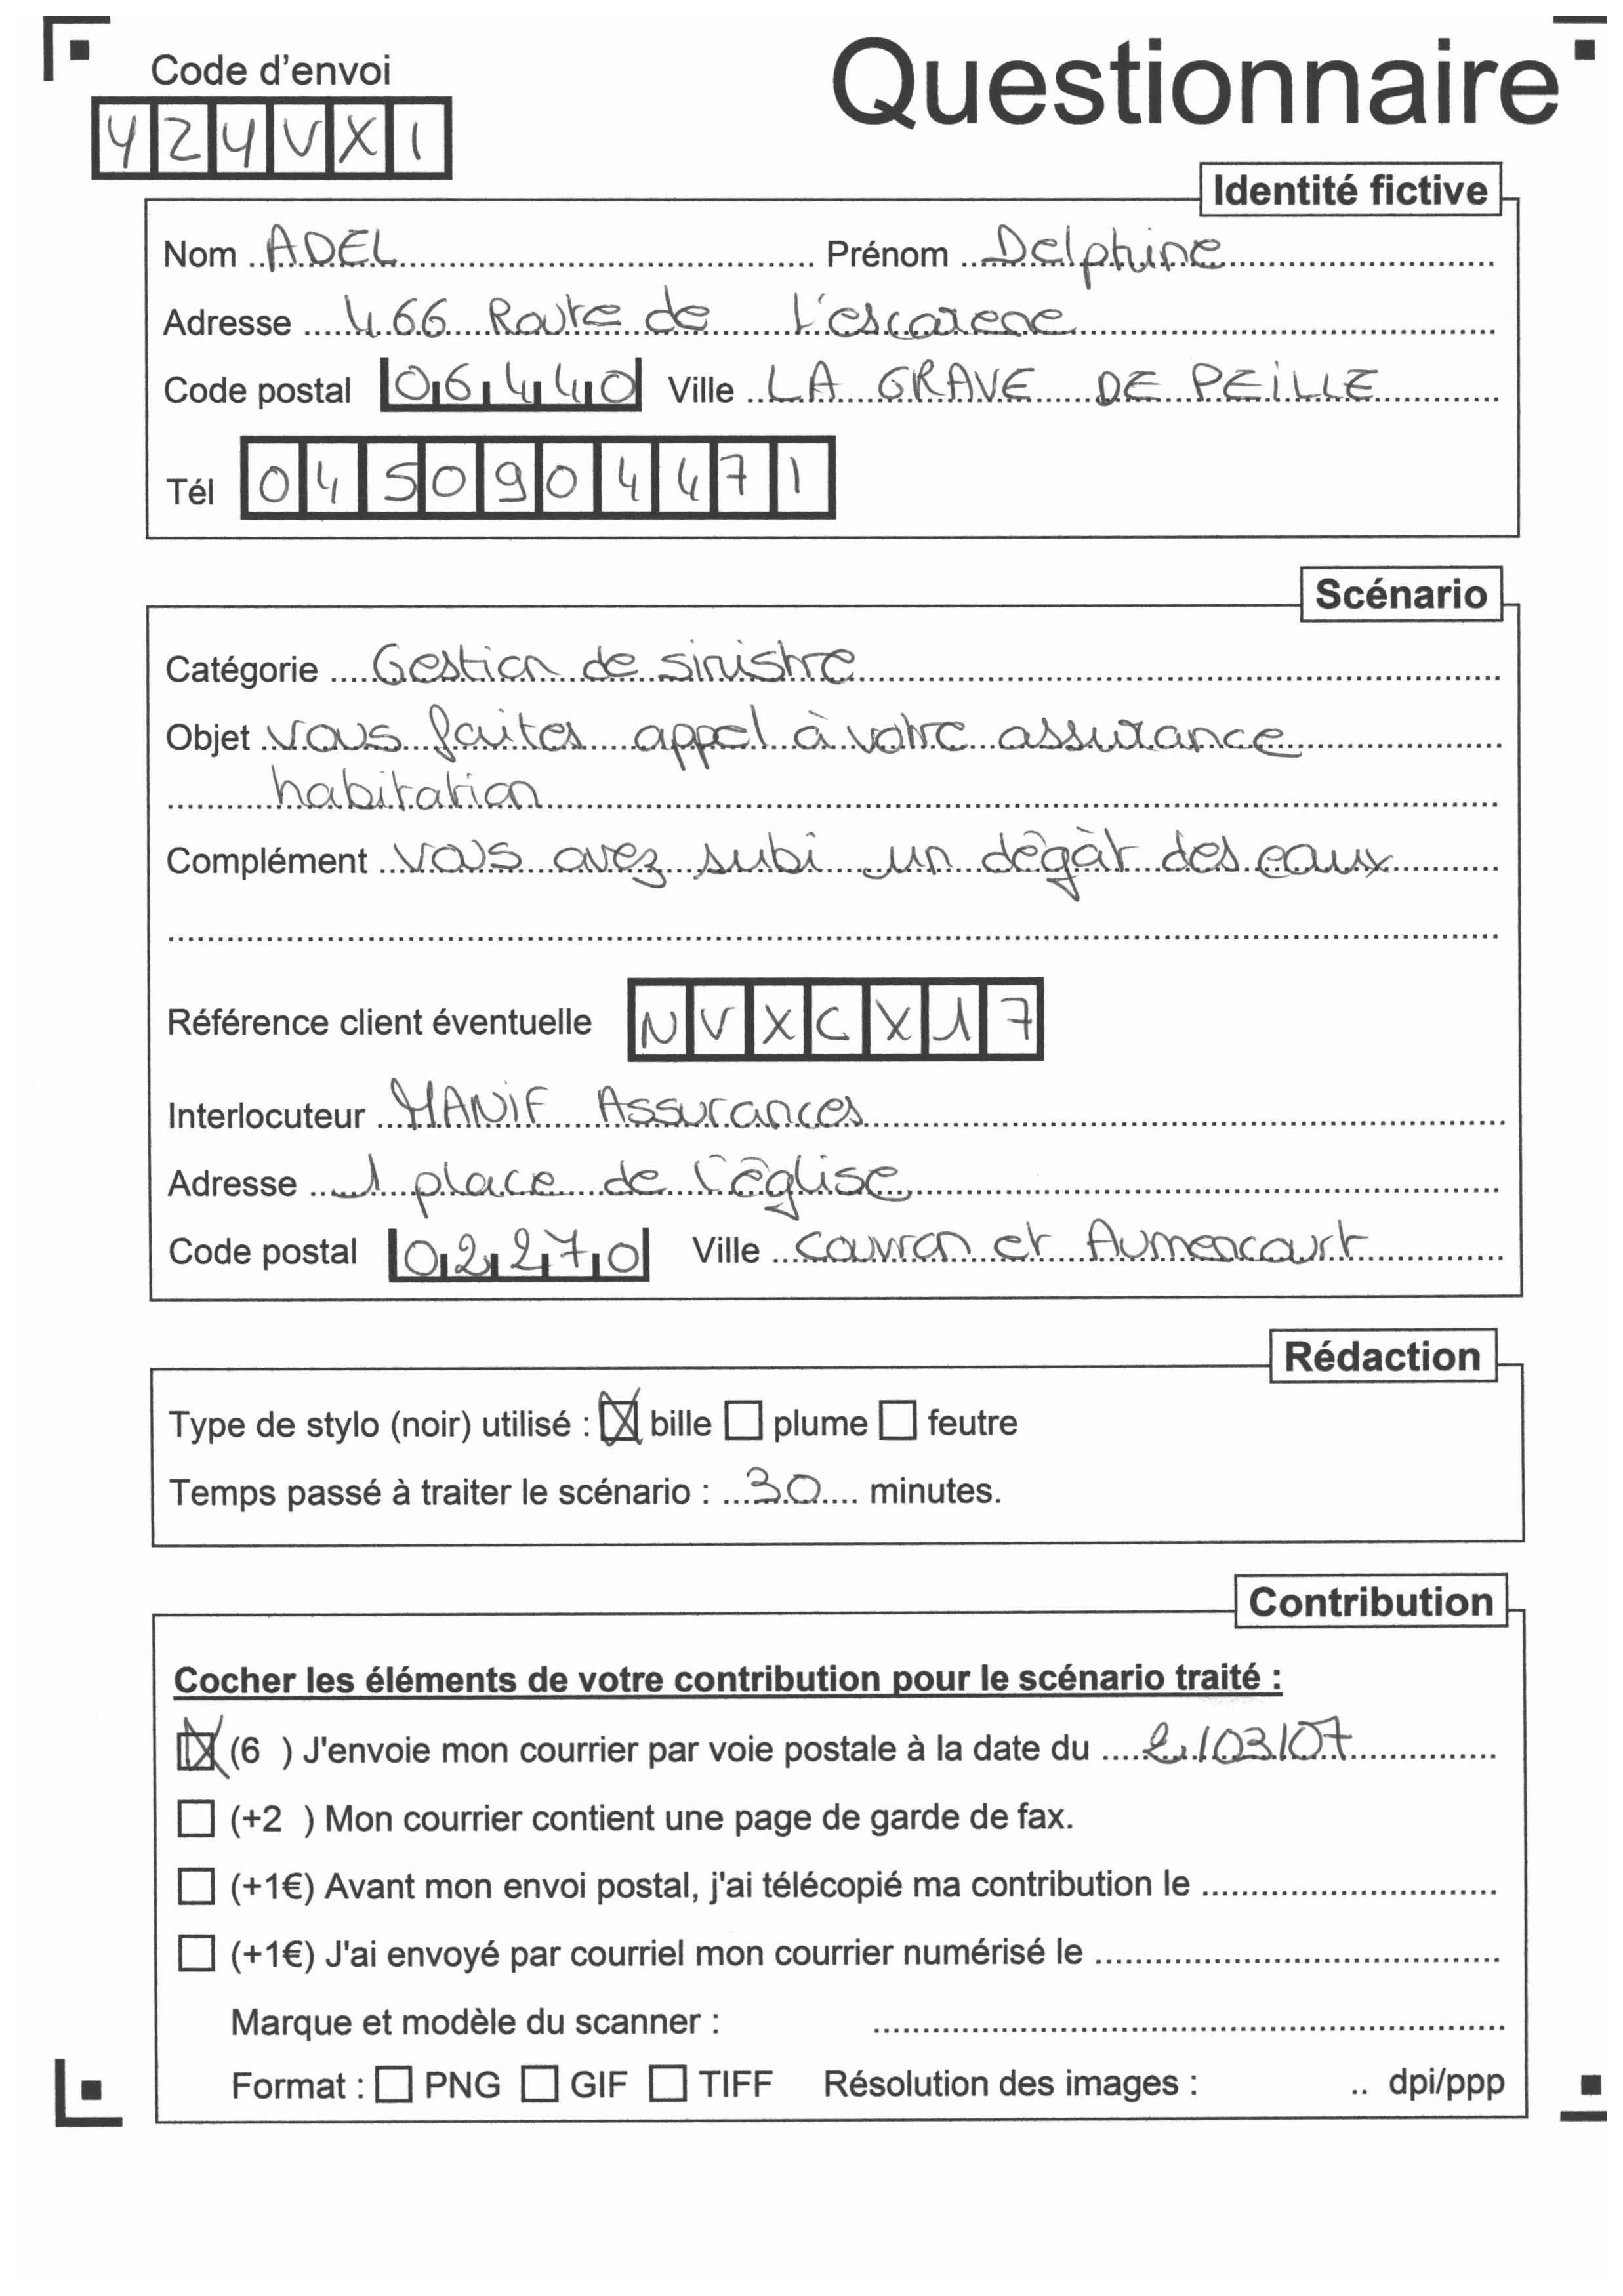 Questionnaire
Code d'envoi
Y Z 4 V X 1
Identité fictive
Nom ADEL Prénom Delphine
Adresse 466 Route de L'escarene
Code postal 06440 Ville LA GRAVE DE PEILLE
Tél 0450904471
Scénario
Catégorie Gestion de sinistre
Objet vous faites appel à votre assurance
habitation
Complément vous avez subi un dégât des eaux
Référence client éventuelle NVXCX17
Interlocuteur MANIF Assurances
Adresse 1 place de l'église
Code postal 02270 Ville couvron et Aumencourt
Rédaction
Type de stylo (noir) utilisé : ☒ bille ☐ plume ☐ feutre
Temps passé à traiter le scénario : 30 minutes.
Contribution
Cocher les éléments de votre contribution pour le scénario traité :
☒ (6 ) J'envoie mon courrier par voie postale à la date du
☐ (+2 ) Mon courrier contient une page de garde de fax.
☐ (+1€) Avant mon envoi postal, j'ai télécopié ma contribution le
☐ (+1€) J'ai envoyé par courriel mon courrier numérisé le
Marque et modèle du scanner :
Format : ☐ PNG ☐ GIF ☐ TIFF Résolution des images : .. dpi/ppp